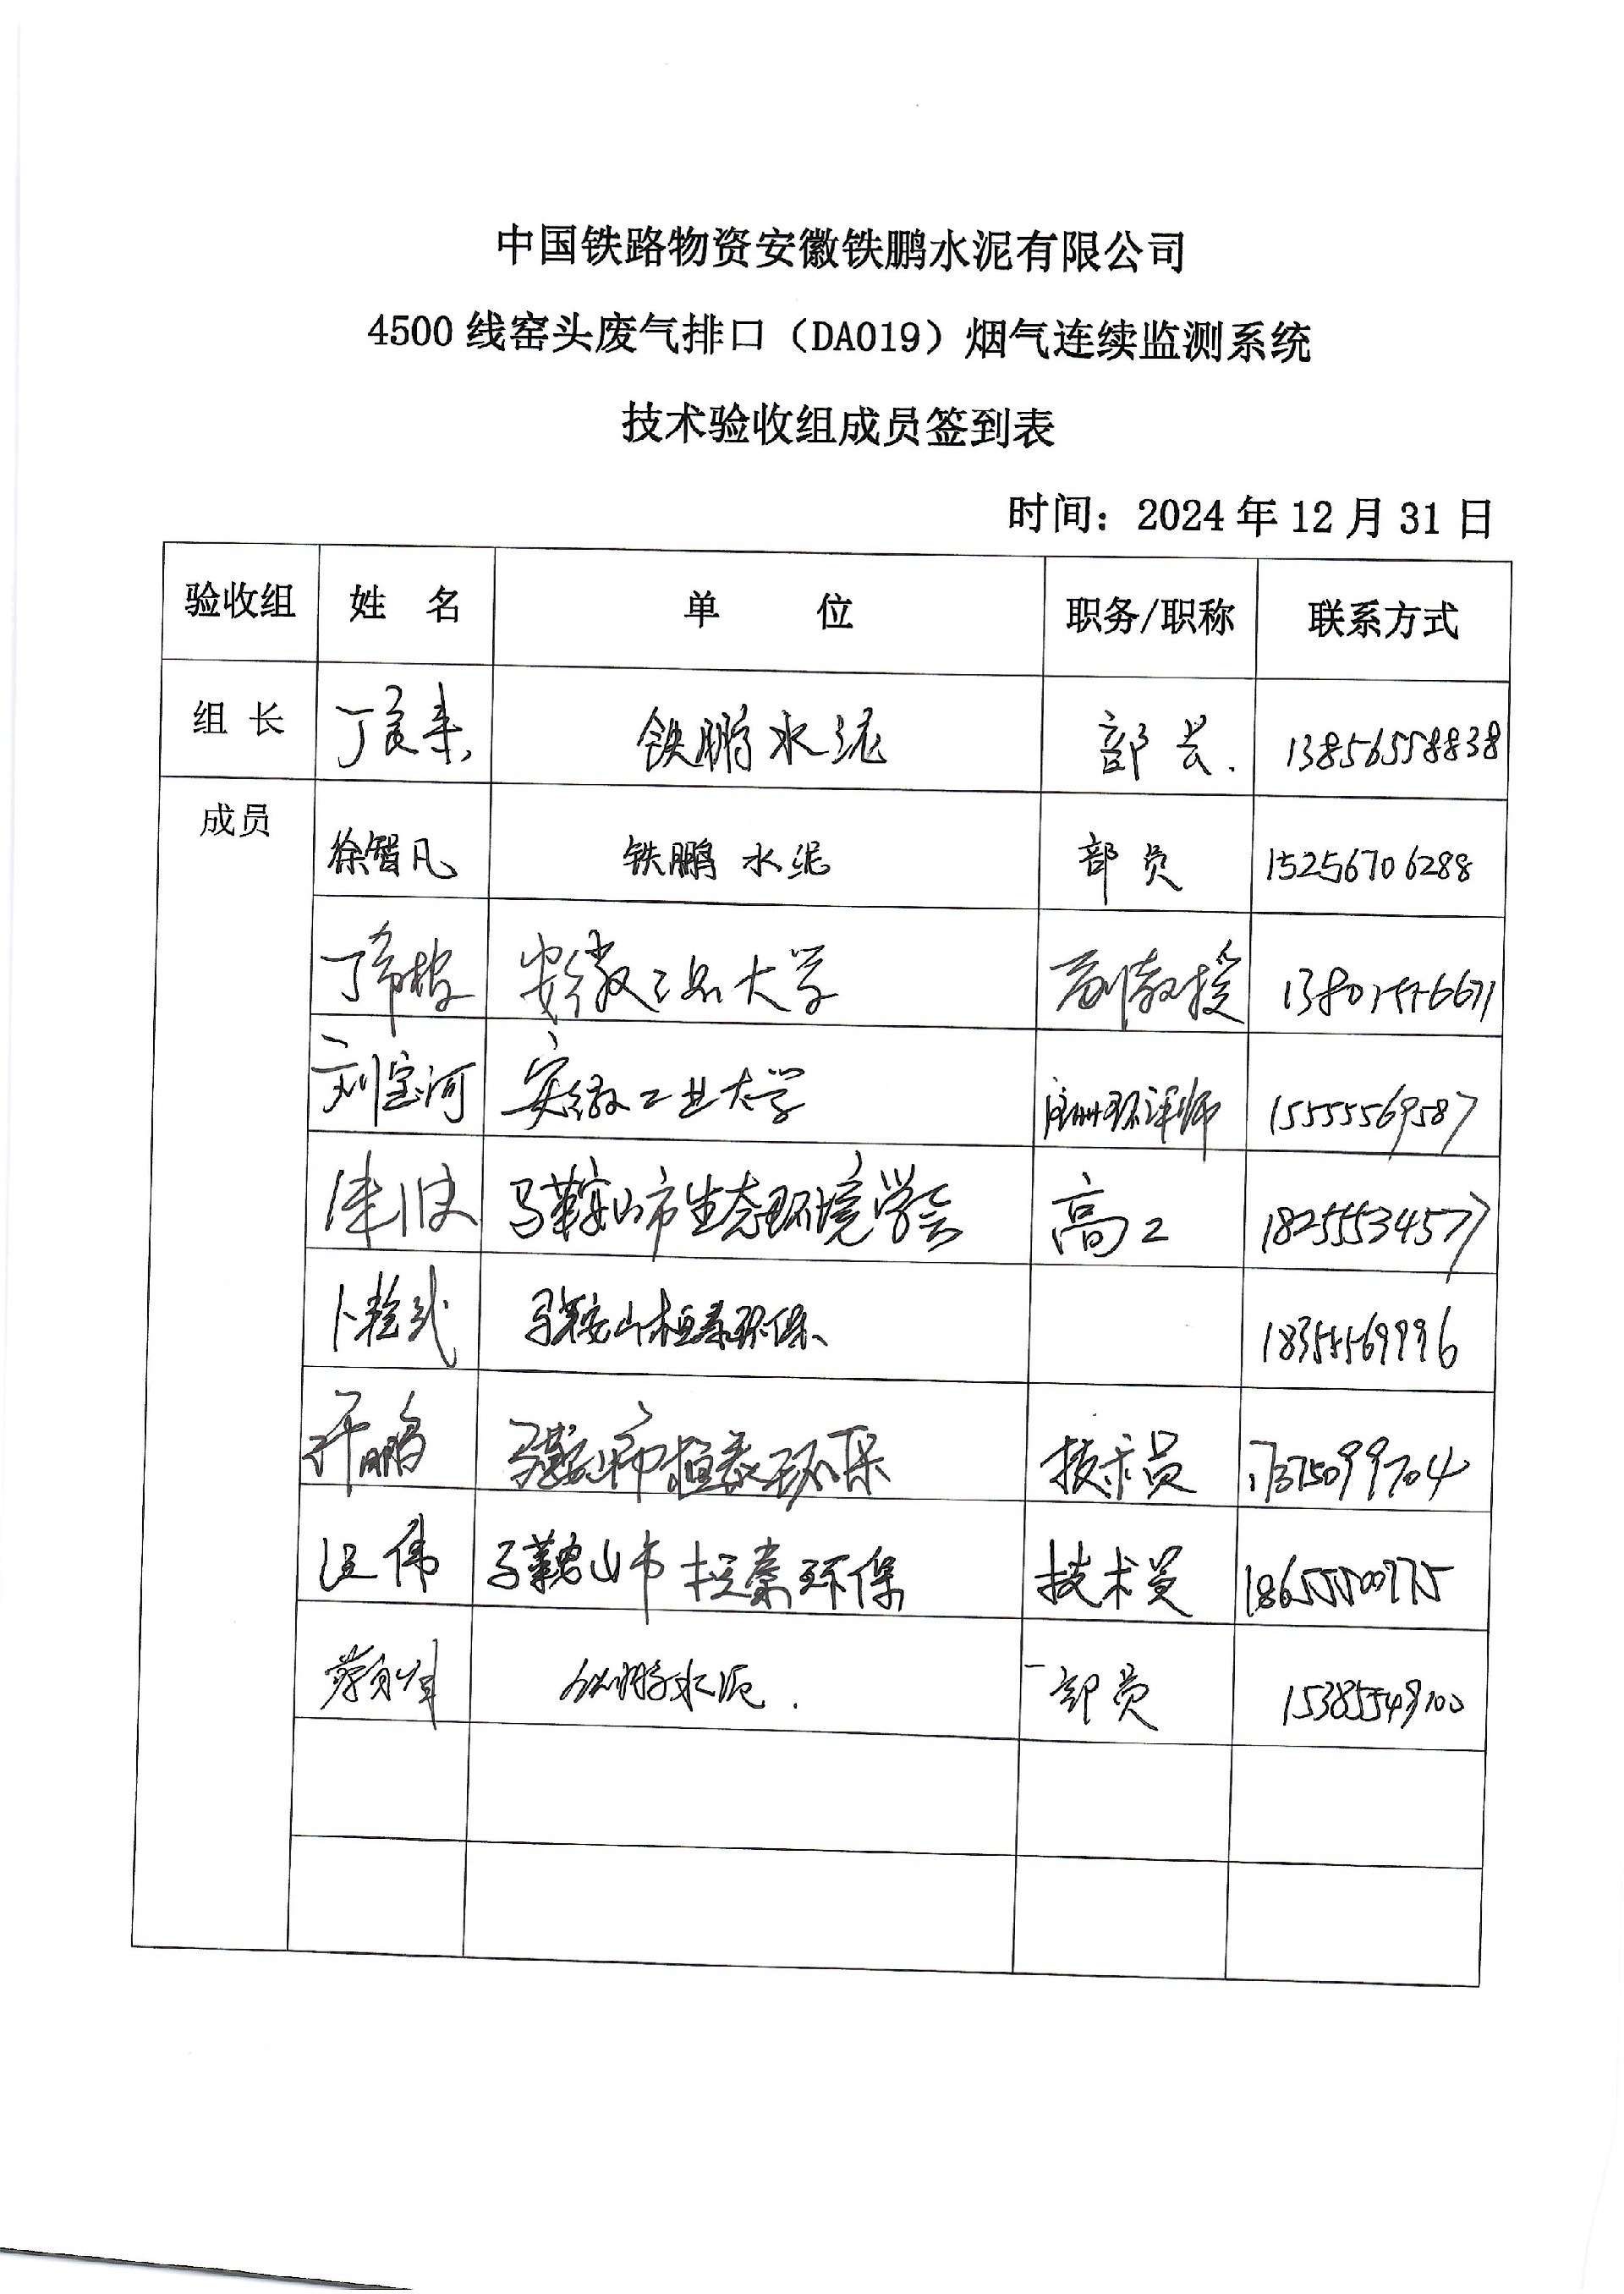 中国铁路物资安徽铁鹏水泥有限公司
4500 线窑头废气排口（DA019）烟气连续监测系统
技术验收组成员签到表
时间：2024 年 12 月 31 日
验收组 姓 名 单 位 职务/职称 联系方式
组 长 丁良来 铁鹏水泥 部长. 13856558838
成员
徐智凡 铁鹏水泥 部员 15256706288
丁希楼 安徽工业大学 副教授
刘宝河 安徽工业大学 注册环评师 15555569587
马鞍山市生态环境学会 高工 18255534577
马鞍山桓泰环保 18355569996
许鹏 马鞍山市桓泰环保 技术员 17375099704
汪伟 马鞍山市桓泰环保 技术员 18655500775
铁鹏水泥. 部员 15385549100